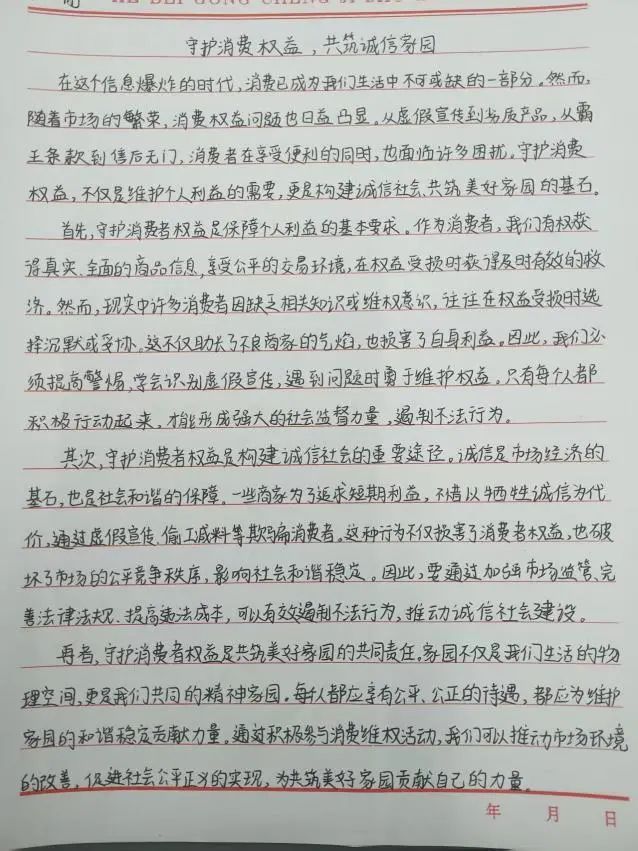 HE BEI GONG CHENG
守护消费权益，共筑诚信家园
在这个信息爆炸的时代，消费已成为我们生活中不可或缺的一部分。然而，
随着市场的繁荣，消费权益问题也日益凸显。从虚假宣传到劣质产品，从霸
王条款到售后无门，消费者在享受便利的同时，也面临许多困扰。守护消费
权益，不仅是维护个人利益的需要，更是构建诚信社会、共筑美好家园的基石。
首先，守护消费者权益是保障个人利益的基本要求。作为消费者，我们有权获
得真实、全面的商品信息，享受公平的交易环境，在权益受损时获得及时有效的救
济。然而，现实中许多消费者因缺乏相关知识或维权意识，往往在权益受损时选
择沉默或妥协。这不仅助长了不良商家的气焰，也损害了自身利益。因此，我们必
须提高警惕，学会识别虚假宣传，遇到问题时勇于维护权益。只有每个人都
积极行动起来，才能形成强大的社会监督力量，遏制不法行为。
其次，守护消费者权益是构建诚信社会的重要途径。诚信是市场经济的
基石，也是社会和谐的保障。一些商家为了追求短期利益，不惜以牺牲诚信为代
价，通过虚假宣传、偷工减料等欺骗消费者。这种行为不仅损害了消费者权益，也破
坏了市场的公平竞争秩序，影响社会和谐稳定。因此，要通过加强市场监管、完
善法律法规、提高违法成本，可以有效遏制不法行为，推动诚信社会建设。
再者，守护消费者权益是共筑美好家园的共同责任。家园不仅是我们生活的物
理空间，更是我们共同的精神家园。每个人都应享有公平、公正的待遇，都应为维护
家园的和谐稳定贡献力量。通过积极参与消费维权活动，我们可以推动市场环境
的改善，促进社会公平正义的实现，为共筑美好家园贡献自己的力量。
年 月 日